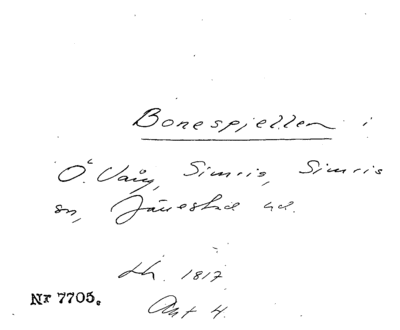 Bonespjellen i
Ö. Vång, Simris, Simris
sn, Järrestad hd.
Lh. 1817
Akt 4.
Nr 7705.